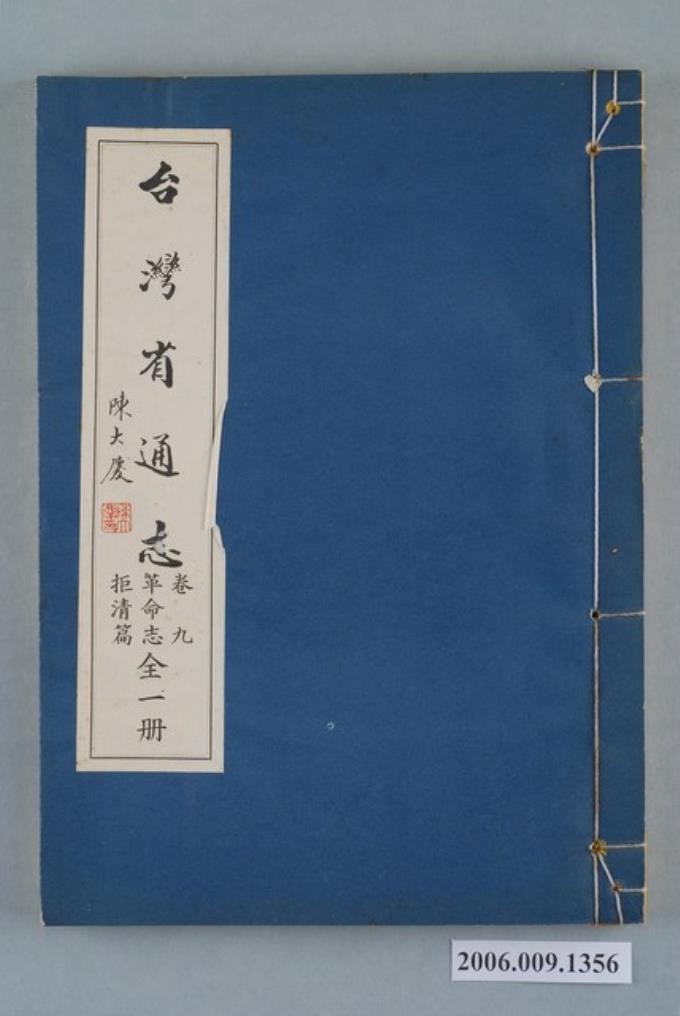 台灣省通志
陳大慶
卷九
革命志
拒清篇
全一册
2006.009.1356